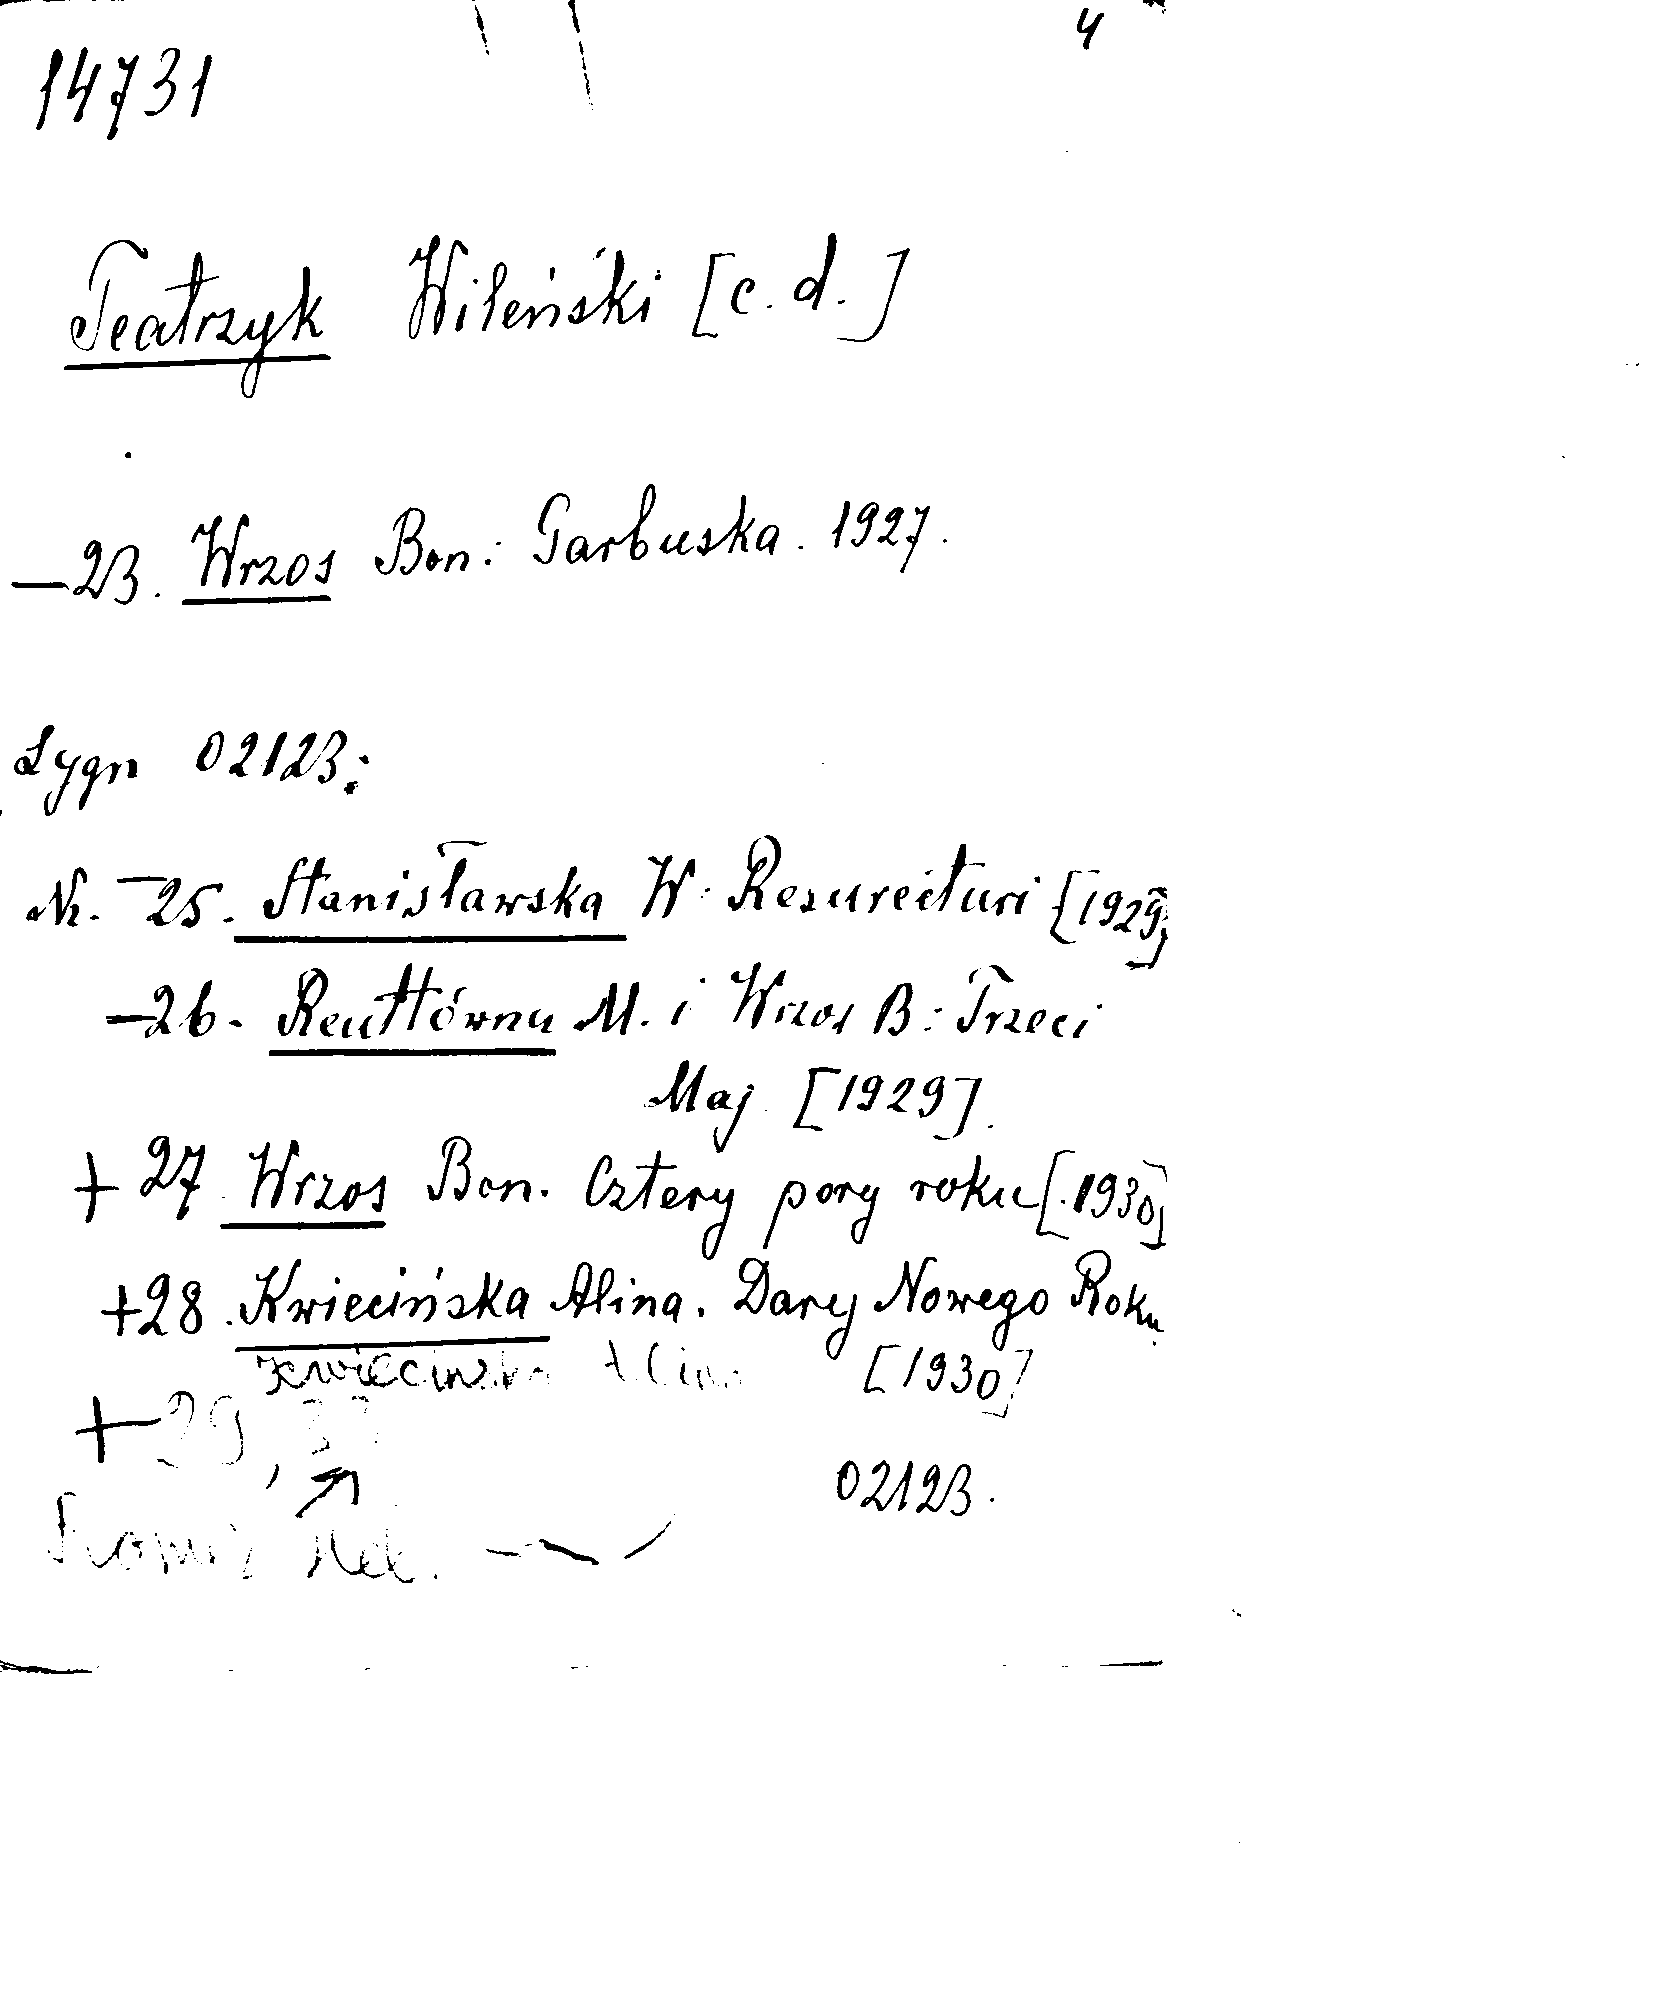 4
14731
Teatrzyk Wileński [c.d.]
-23. Wrzos Bon: Garbuska. 1927.
Sygn 02123:
Nr. -25. Stanisławska W: Resurecturi [1929]
-26. Reuttówna M. i Wrzos B: Trzeci
Maj [1929].
+27. Wrzos Bon. Cztery pory roku [1930]
+28. Kwiecińska Alina. Dary Nowego Roku
[1930]
+29,
02123.